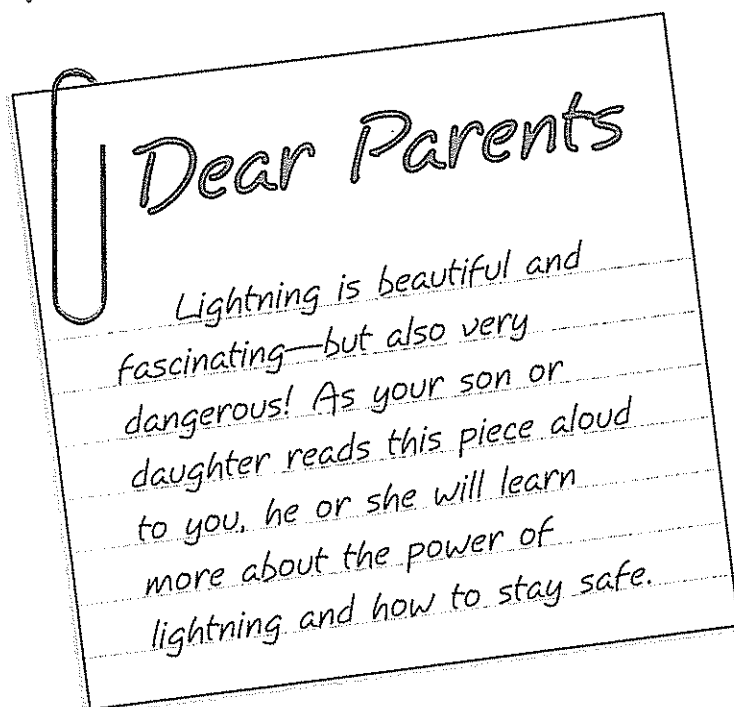 Dear Parents
Lightning is beautiful and
fascinating—but also very
dangerous! As your son or
daughter reads this piece aloud
to you, he or she will learn
more about the power of
lightning and how to stay safe.